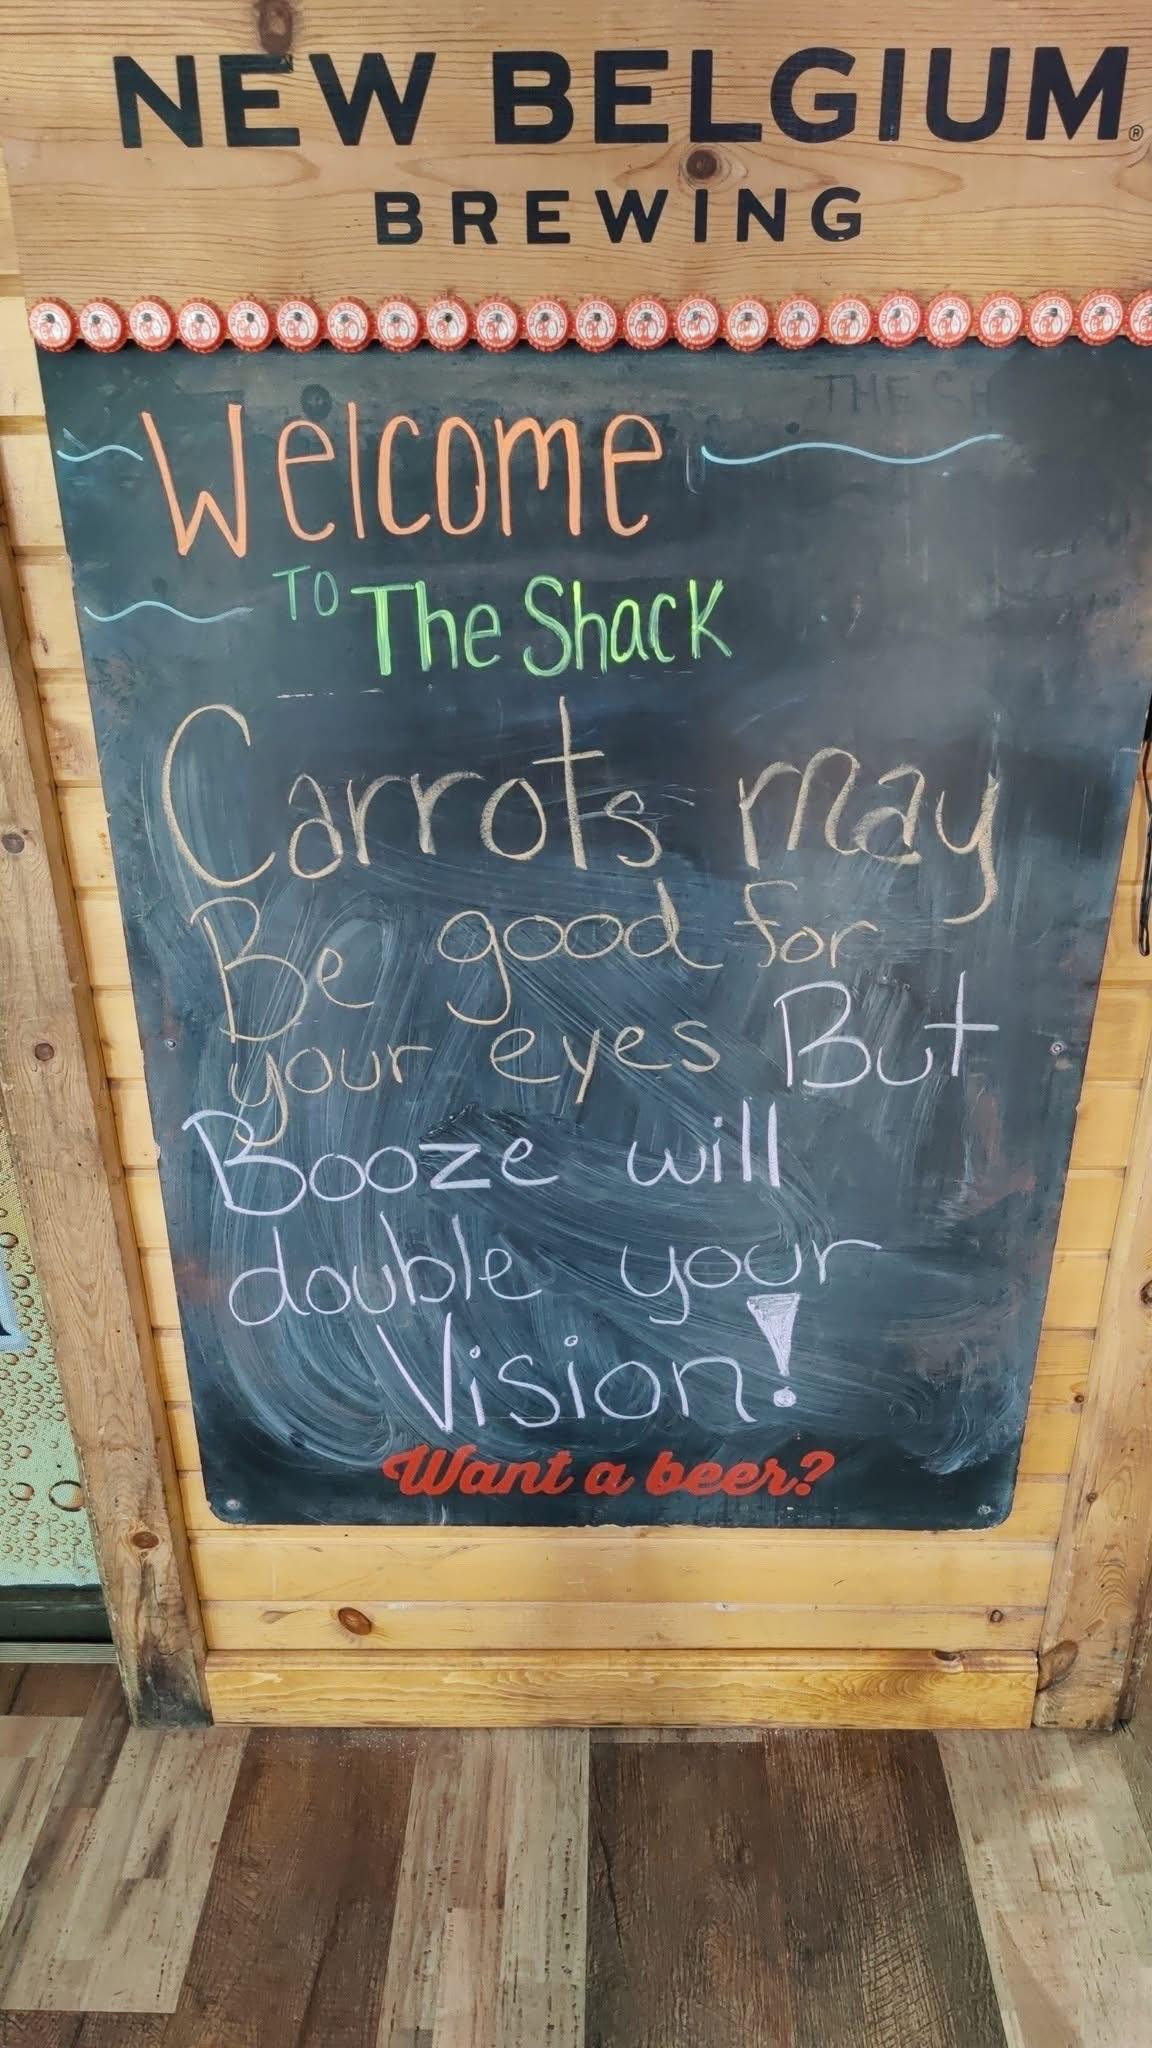 NEW BELGIUM®
BREWING
THE SH
Welcome
TO The Shack
Carrots may
Be good for
your eyes But
Booze will
double your
Vision!
Want a beer?